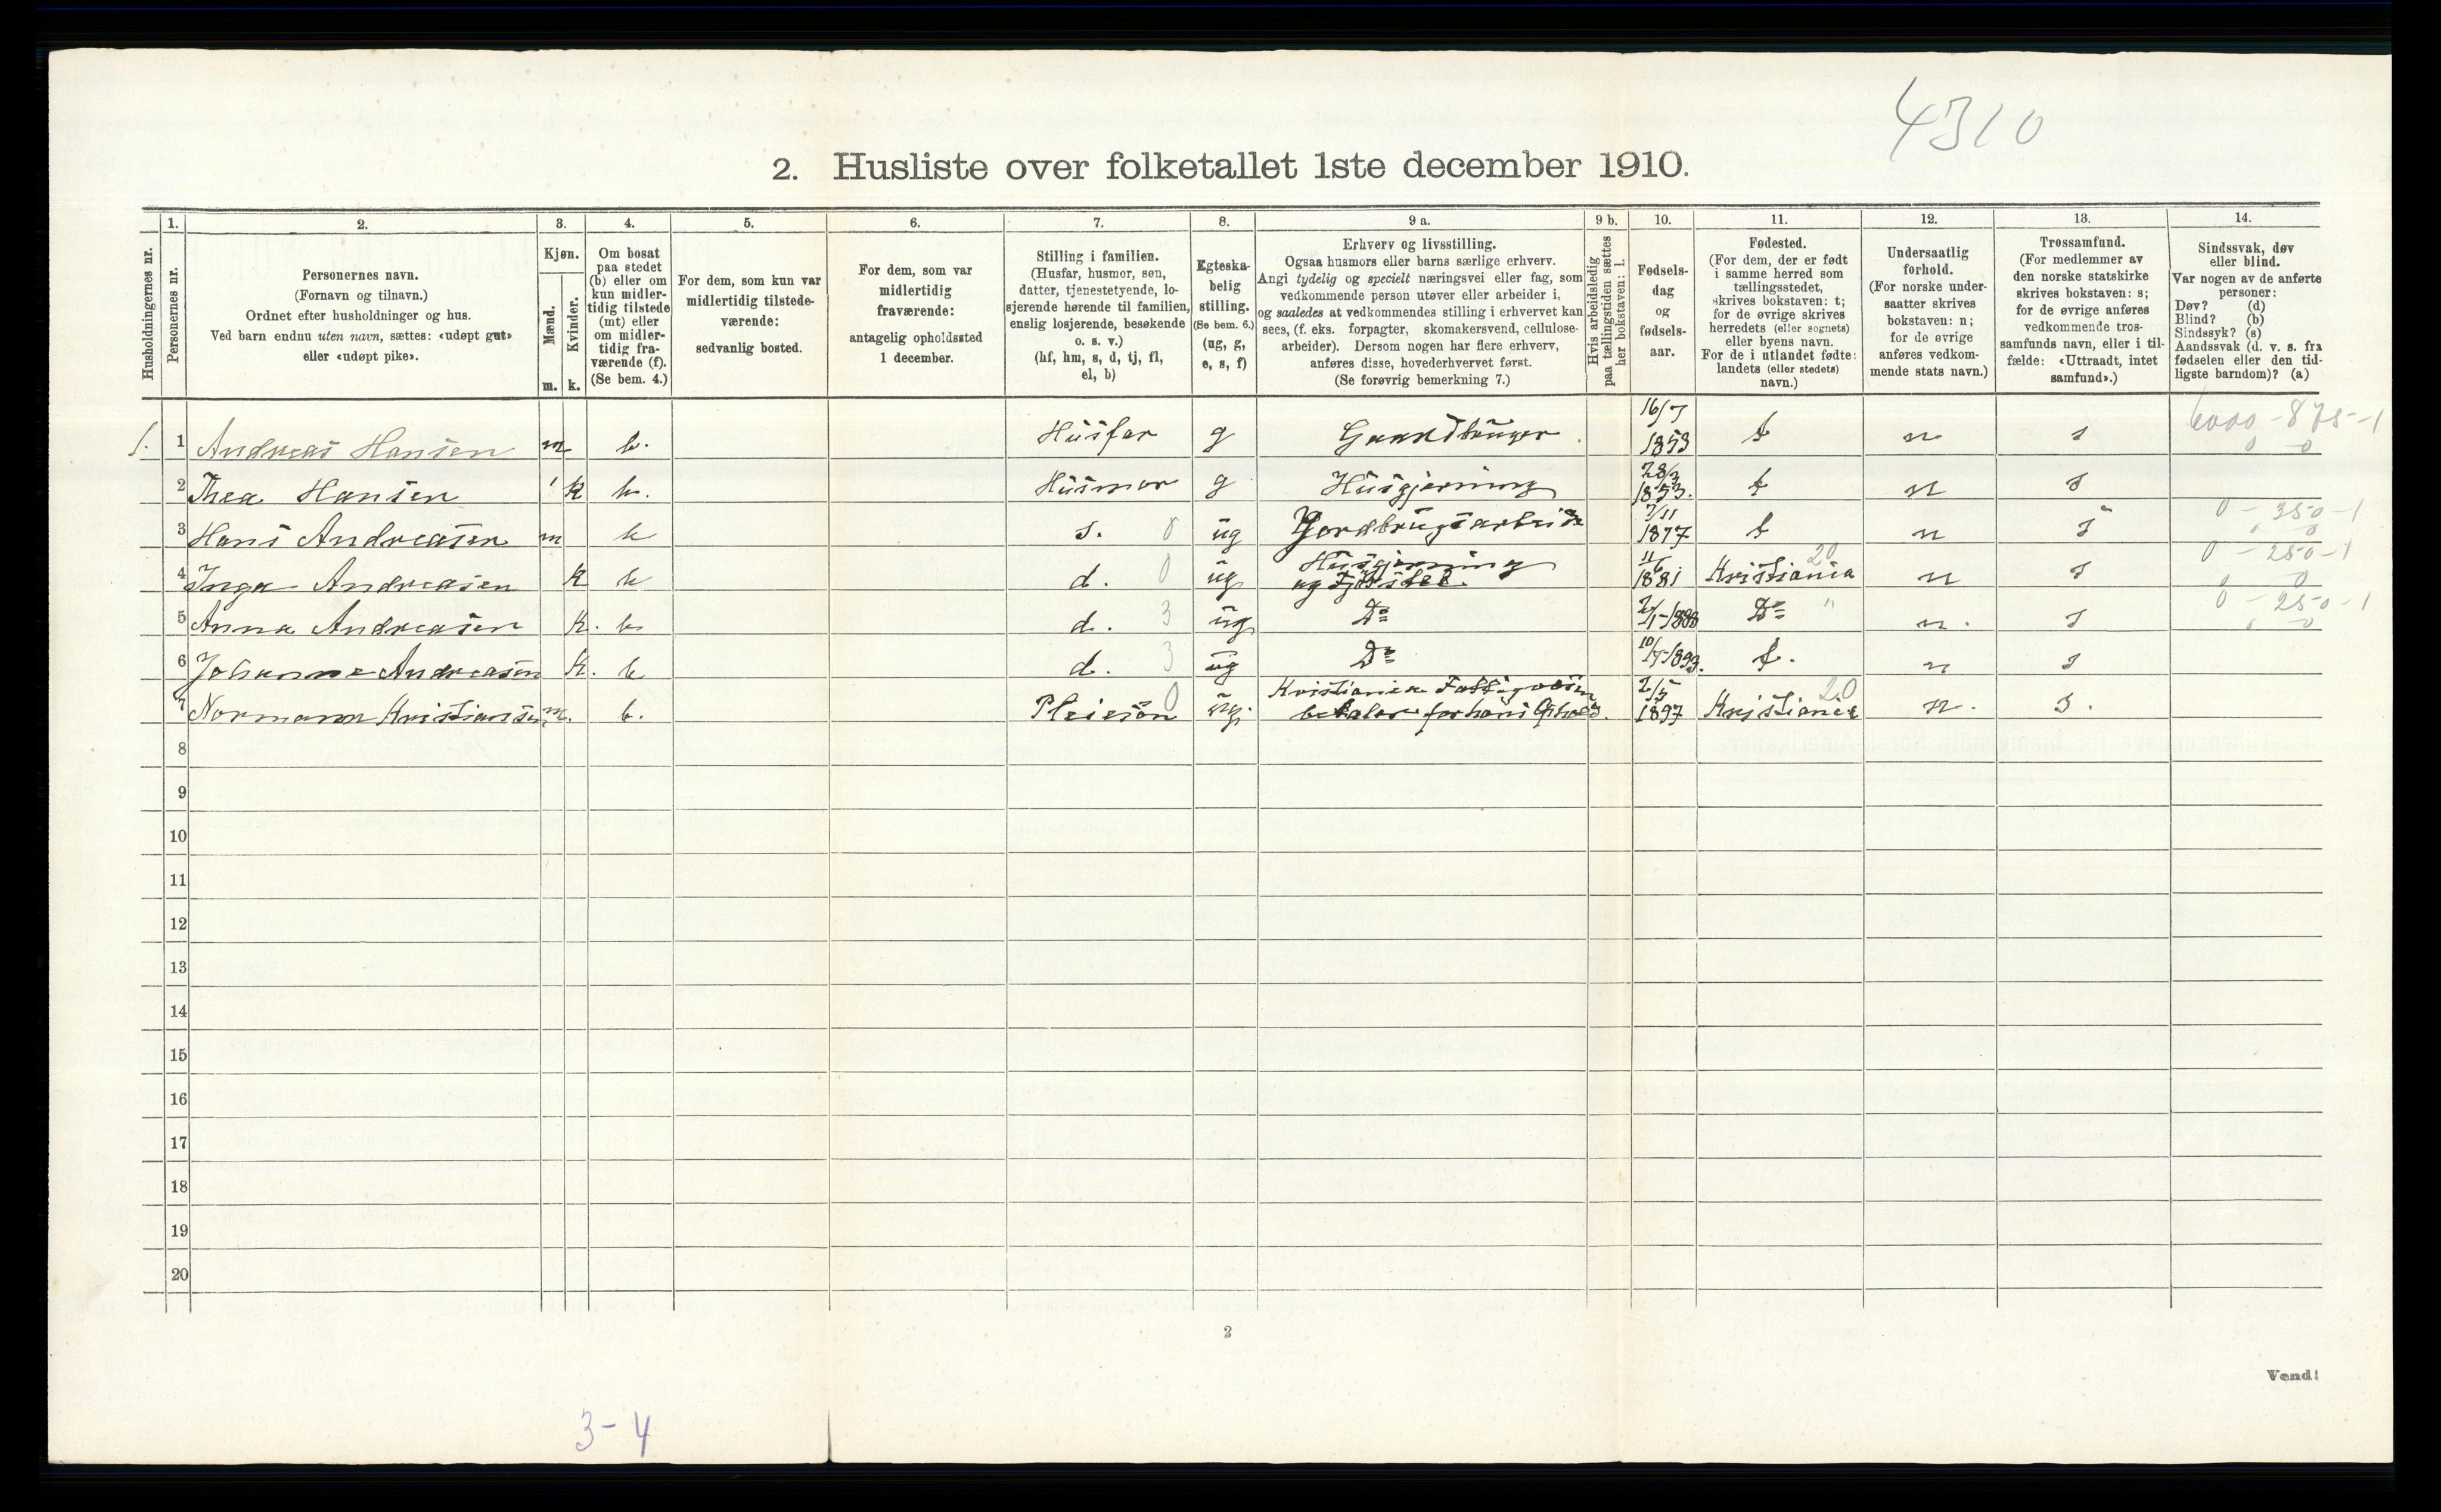 4310
2. Husliste over folketallet 1ste december 1910.
Husholdningernes nr.
1.
Personernes nr.
2.
Personernes navn.
(Fornavn og tilnavn.)
Ordnet efter husholdninger og hus.
Ved barn endnu uten navn, sættes: «udøpt gut»
eller «udøpt pike».
3.
Kjøn.
Mænd.
Kvinder.
m. k.
4.
Om bosat
paa stedet
(b) eller om
kun midler-
tidig tilstede
(mt) eller
om midler-
tidig fra-
værende (f).
(Se bem. 4.)
5.
For dem, som kun var
midlertidig tilstede-
værende:
sedvanlig bosted.
6.
For dem, som var
midlertidig
fraværende:
antagelig opholdssted
1 december.
7.
Stilling i familien.
(Husfar, husmor, søn,
datter, tjenestetyende, lo-
sjerende hørende til familien,
enslig losjerende, besøkende
o. s. v.)
(hf, hm, s, d, tj, fl,
el, b)
8.
Egteska-
belig
stilling.
(Se bem. 6.)
(ug, g,
e, s, f)
9 a.
Erhverv og livsstilling.
Ogsaa husmors eller barns særlige erhverv.
Angi tydelig og specielt næringsvei eller fag, som
vedkommende person utøver eller arbeider i,
og saaledes at vedkommendes stilling i erhvervet kan
sees, (f. eks. forpagter, skomakersvend, cellulose-
arbeider). Dersom nogen har flere erhverv,
anføres disse, hovederhvervet først.
(Se forøvrig bemerkning 7.)
9 b.
Hvis arbeidsledig
paa tællingstiden sættes
her bokstaven: l.
10.
Fødsels-
dag
og
fødsels-
aar.
11.
Fødested.
(For dem, der er født
i samme herred som
tællingsstedet,
skrives bokstaven: t;
for de øvrige skrives
herredets (eller sognets)
eller byens navn.
For de i utlandet fødte:
landets (eller stedets)
navn.)
12.
Undersaatlig
forhold.
(For norske under-
saatter skrives
bokstaven: n;
for de øvrige
anføres vedkom-
mende stats navn.)
13.
Trossamfund.
(For medlemmer av
den norske statskirke
skrives bokstaven: s;
for de øvrige anføres
vedkommende tros-
samfunds navn, eller i til-
fælde: «Uttraadt, intet
samfund».)
14.
Sindssvak, døv
eller blind.
Var nogen av de anførte
personer:
Døv? (d)
Blind? (b)
Sindssyk? (s)
Aandssvak (d. v. s. fra
fødselen eller den tid-
ligste barndom)? (a)
1. 1 Andreas Hansen m b. Husfar g Gaardbruger 16/7 1853 t n s 6000-875-1 0 0
2 Thea Hansen k b. Husmor g Husgjerning 28/3 1853. t n s
3 Hans Andreasen m b s. 0 ug Jordbrugsarbeide 7/11 1877 t n s 0-350-1
4 Inga Andreasen k b d. 0 ug Husgjerning og Fjøsstel. 11/6 1881 Kristiania 20 n s 0-250-1
5 Anna Andreasen k. b d. 3 ug Do 1888 Do " n. s 0-250-1
6 Johanne Andreasen k. b d. 3 ug Do 1893. t. n s
7 Normann Kristiansen m. b. Pleiesøn 0 ug. Kristiania Fattigvæsen betaler for hans Ophold. 2/5 1897 Kristiania 20 n. s.
8
9
10
11
12
13
14
15
16
17
18
19
20
2
Vend!
3-4